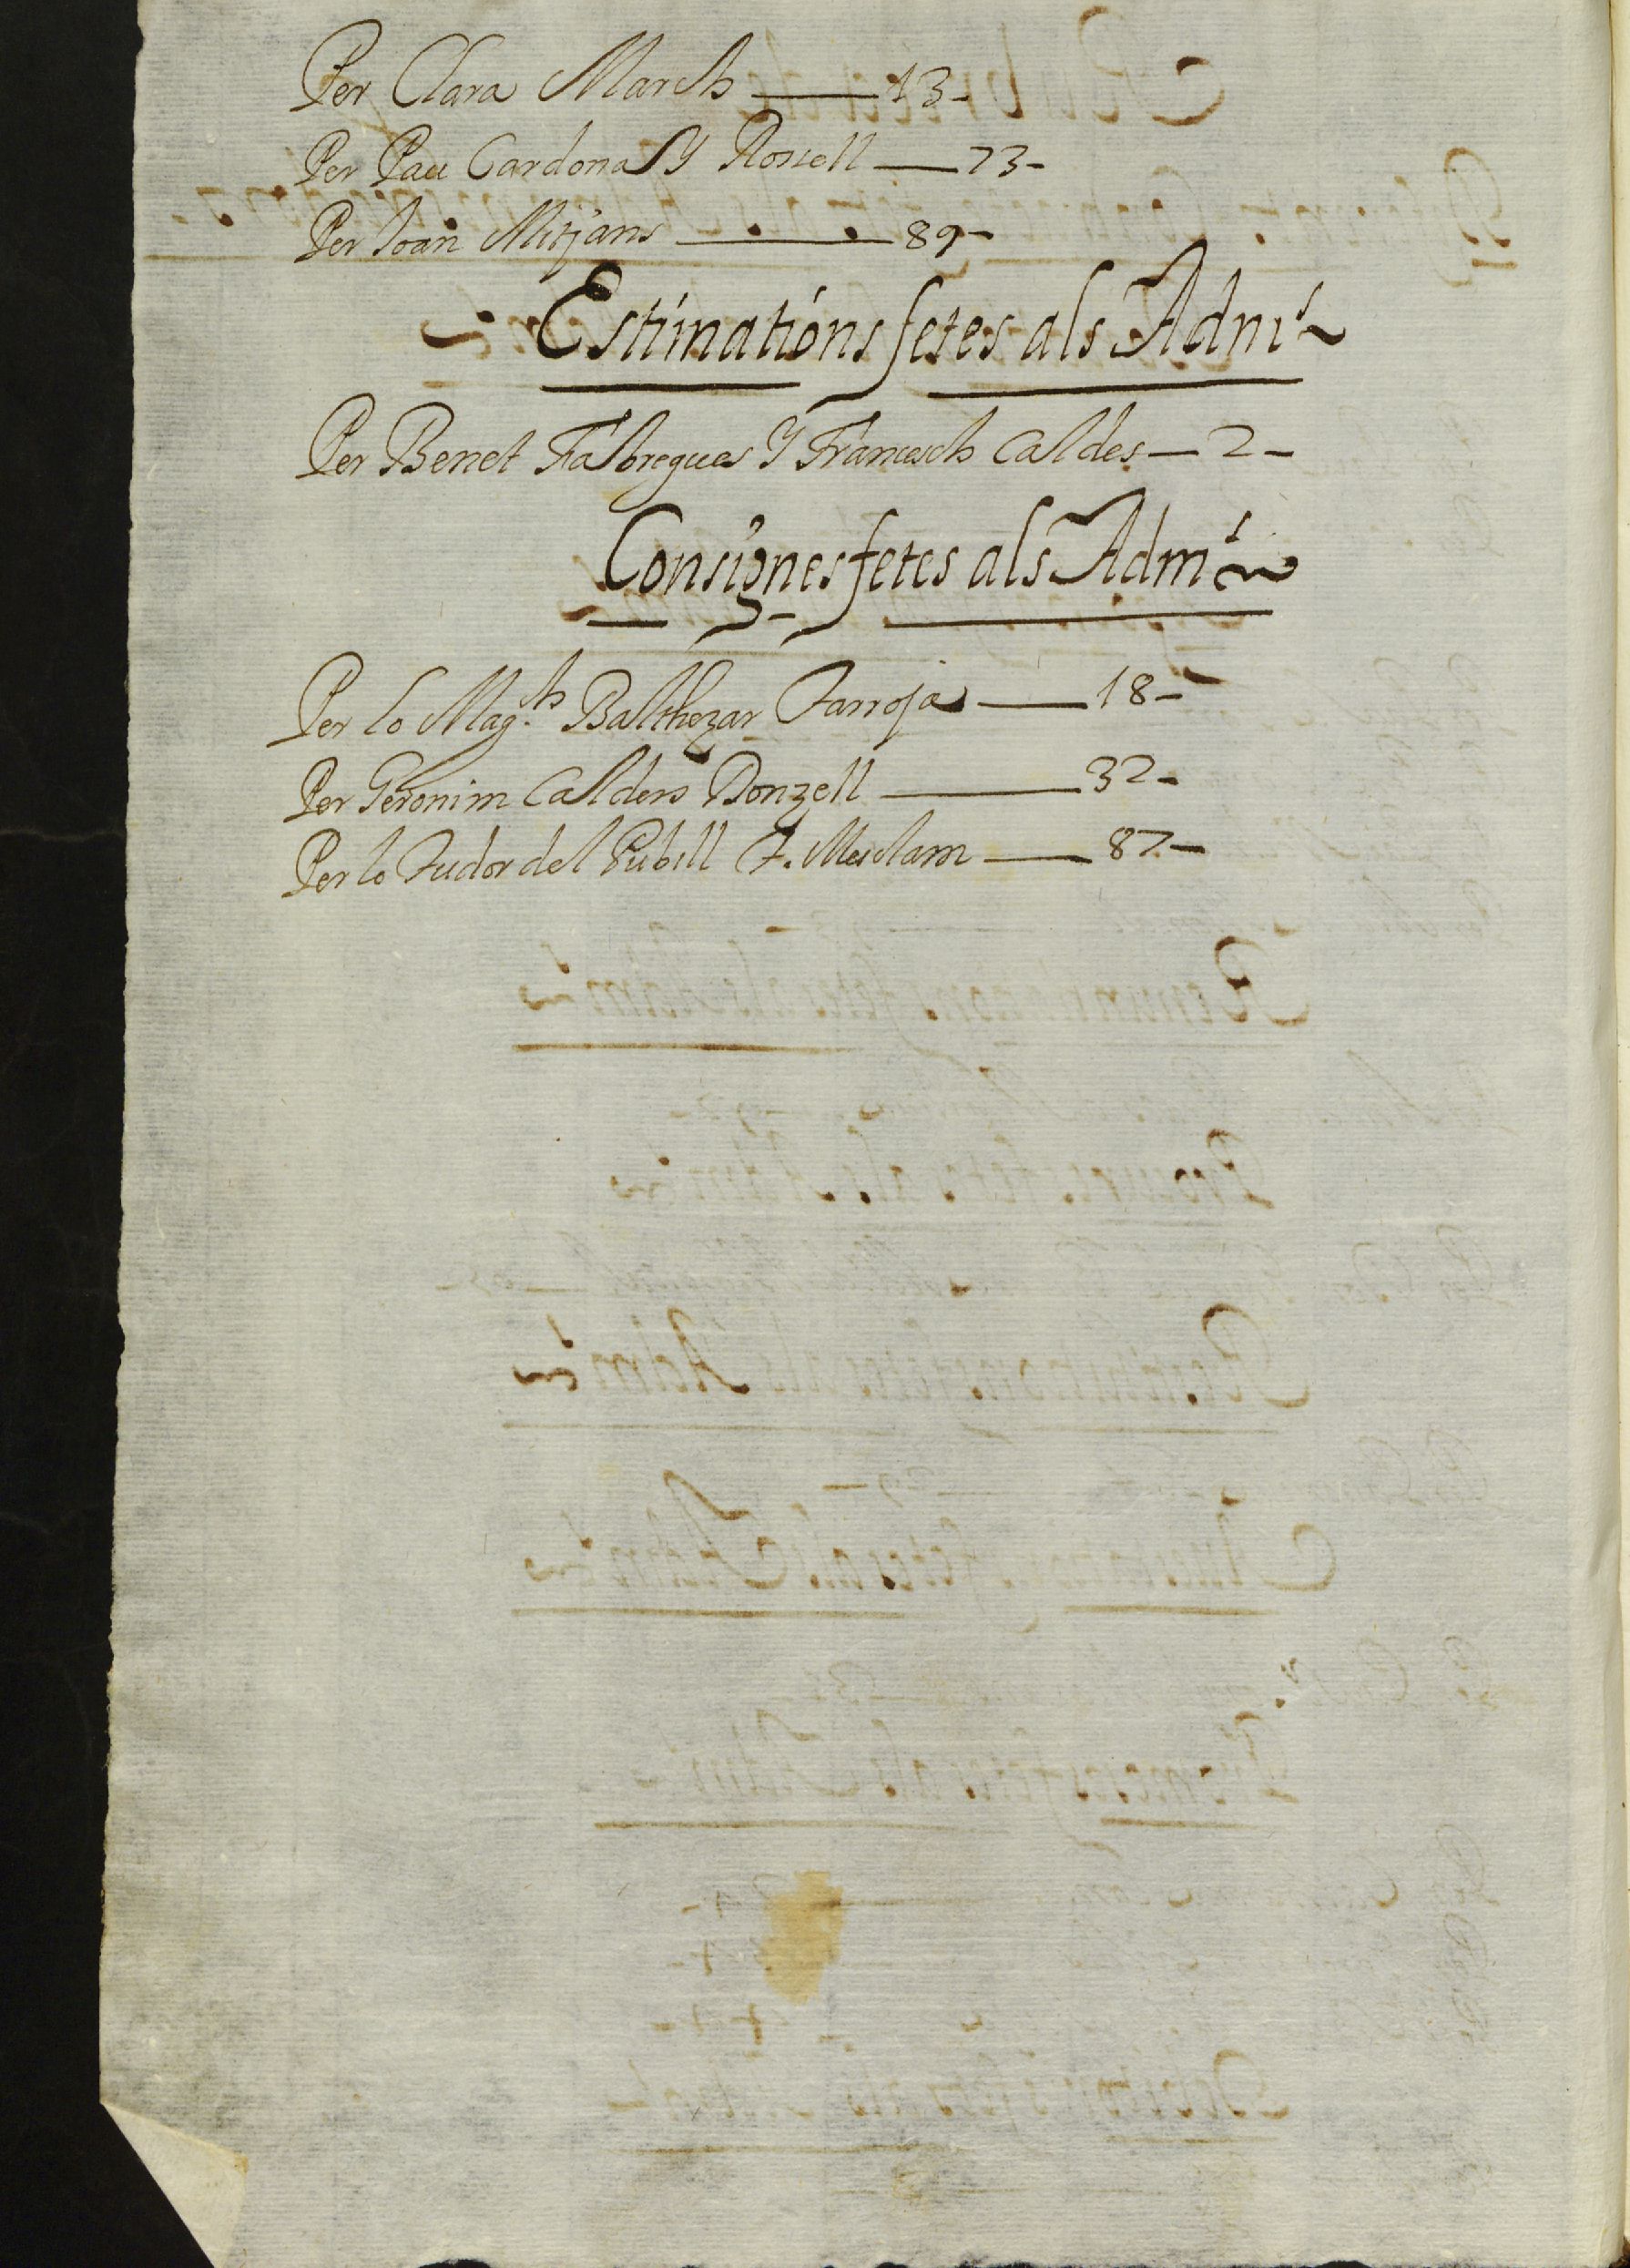 Per Clara March — 13 -
Per Pau Cardona Y Rossell — 73 -
Per Joan Mitjans — 89 -
Estimations fetes als Adm.rs
Per Benet Fabregues Y Francesch Caldes — 2 -
Consignes fetes als Adm.rs
Per lo Mag.ch Balthezar Tarroja — 18 -
Per Geronim Calders Donzell — 32 -
Per lo Tudor del Pubill F. Mesclam — 87 -